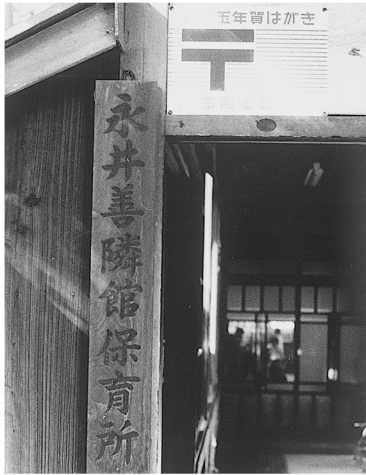 年賀はがき
〒
永井善隣館保育所